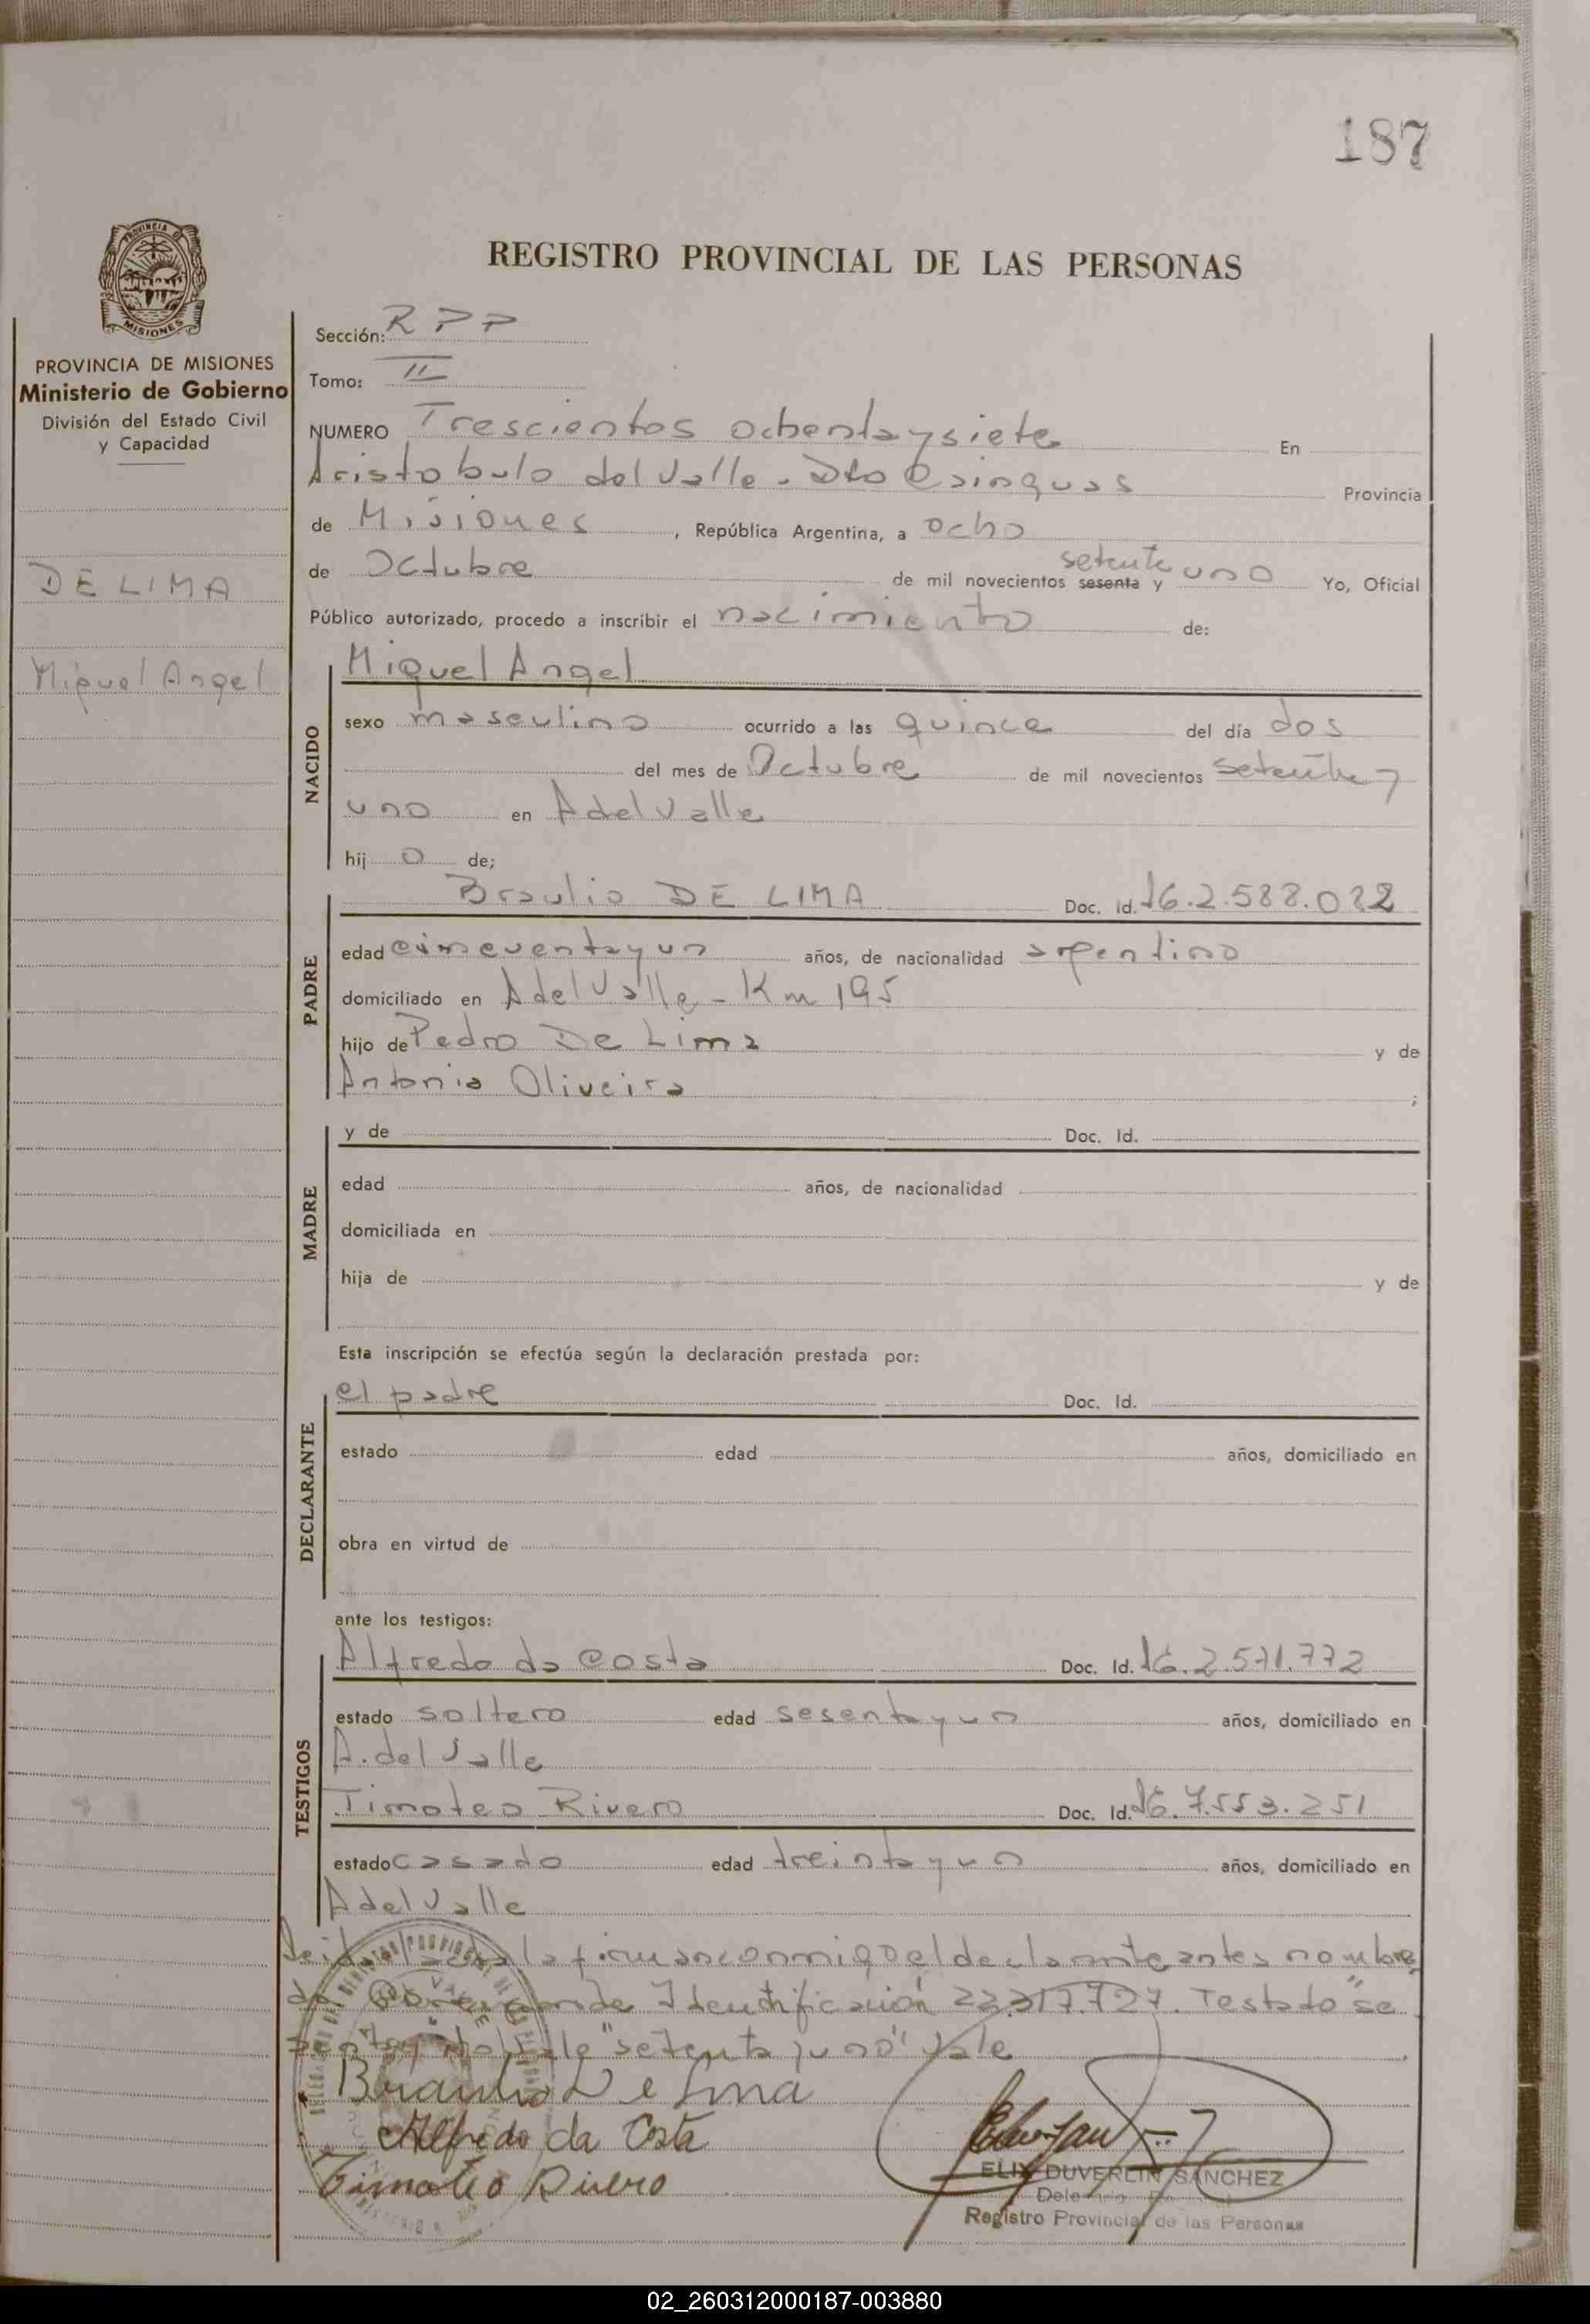 187
PROVINCIA DE
MISIONES
REGISTRO PROVINCIAL DE LAS PERSONAS
PROVINCIA DE MISIONES
Ministerio de Gobierno
División del Estado Civil
y Capacidad
DE LIMA
Miguel Angel
Sección: RPP
Tomo: II
NUMERO Trescientos ochentaysiete En
Aristobulo del Valle - Dto Cainguas Provincia
de Misiones, República Argentina, a ocho
setenta
de Octubre de mil novecientos sesenta y uno Yo, Oficial
Público autorizado, procedo a inscribir el nacimiento de:
NACIDO
Miguel Angel
sexo masculino ocurrido a las quince del día dos
del mes de Octubre de mil novecientos setenta y
uno en A del Valle
hij o de;
PADRE
Braulio DE LIMA Doc. Id. M6.2.588.022
edad cincuentayun años, de nacionalidad argentino
domiciliado en A del Valle - Km 195
hijo de Pedro De Lima y de
Antonia Oliveira ;
MADRE
y de Doc. Id.
edad años, de nacionalidad
domiciliada en
hija de y de
Esta inscripción se efectúa según la declaración prestada por:
DECLARANTE
el padre Doc. Id.
estado edad años, domiciliado en
obra en virtud de
ante los testigos:
TESTIGOS
Alfredo da Costa Doc. Id. M6.2.571.772
estado soltero edad sesentayun años, domiciliado en
A. del Valle
Timoteo Rivero Doc. Id. M6.7.553.251
estado casado edad treintayun años, domiciliado en
A del Valle
Leida el acta la firman conmigo el declarante antes nombra
do Identificación 22.317.727. Testado "se
senta" no vale "setenta y uno" Vale
Braulio De Lima
Alfredo da Costa
Timoteo Rivero
ELIX DUVERLIN SANCHEZ
Registro Provincial de las Personas
02_260312000187-003880